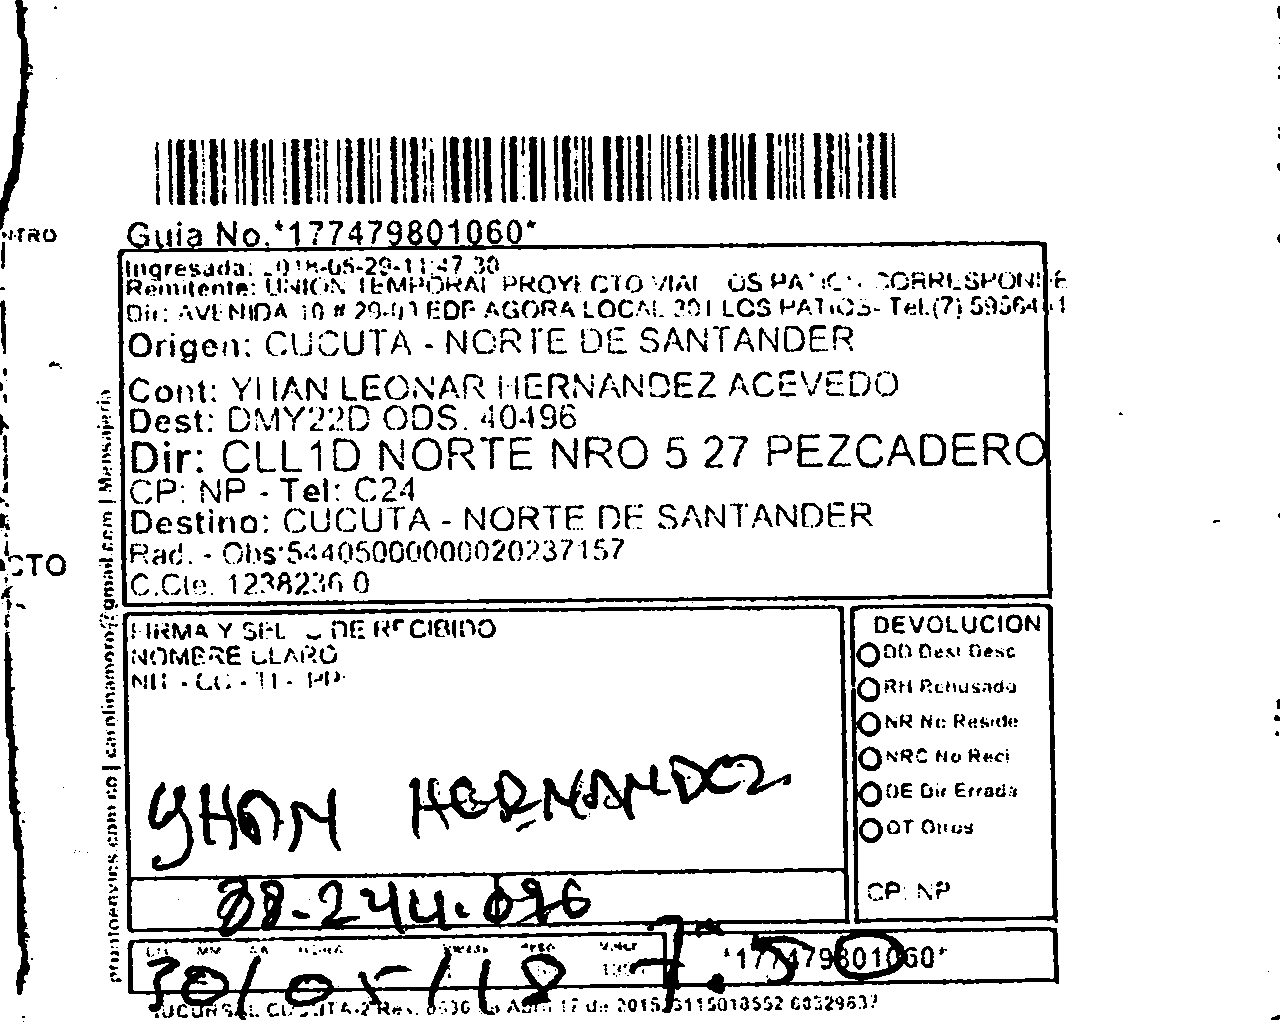 NTRO
Guia No.*177479801060*
Ingresada: 2018-05-29-11:47:30
Remitente: UNION TEMPORAL PROYECTO VIAL LOS PATIOS CORRESPONDE
Dir: AVENIDA 10 # 29-01 EDF AGORA LOCAL 301 LOS PATIOS- Tel.(7)
Origen: CUCUTA - NORTE DE SANTANDER
Cont: YHAN LEONAR HERNANDEZ ACEVEDO
Dest: DMY22D ODS. 40496
Dir: CLL1D NORTE NRO 5 27 PEZCADERO
CP: NP - Tel: C24
Destino: CUCUTA - NORTE DE SANTANDER
Rad. - Obs:54405000000020237157
C.Cte. 1238236 0
CTO
FIRMA Y SELLO DE RECIBIDO
NOMBRE CLARO
NIT - CC - TI - PP:
YHAN HERNANDEZ
88-244.096
DEVOLUCION
DD Dest Desc
RH Rehusado
NR No Reside
NRC No Recl
DE Dir Errada
OT Otros
CP: NP
DD MM AA HORA Peso Valor
30/05/18
*177479801060*
SUCURSAL CUCUTA-2 Res. de Abril 17 de 2015
prontoenvios.com.co | carolinamoro@gmail.com | Mensajeria